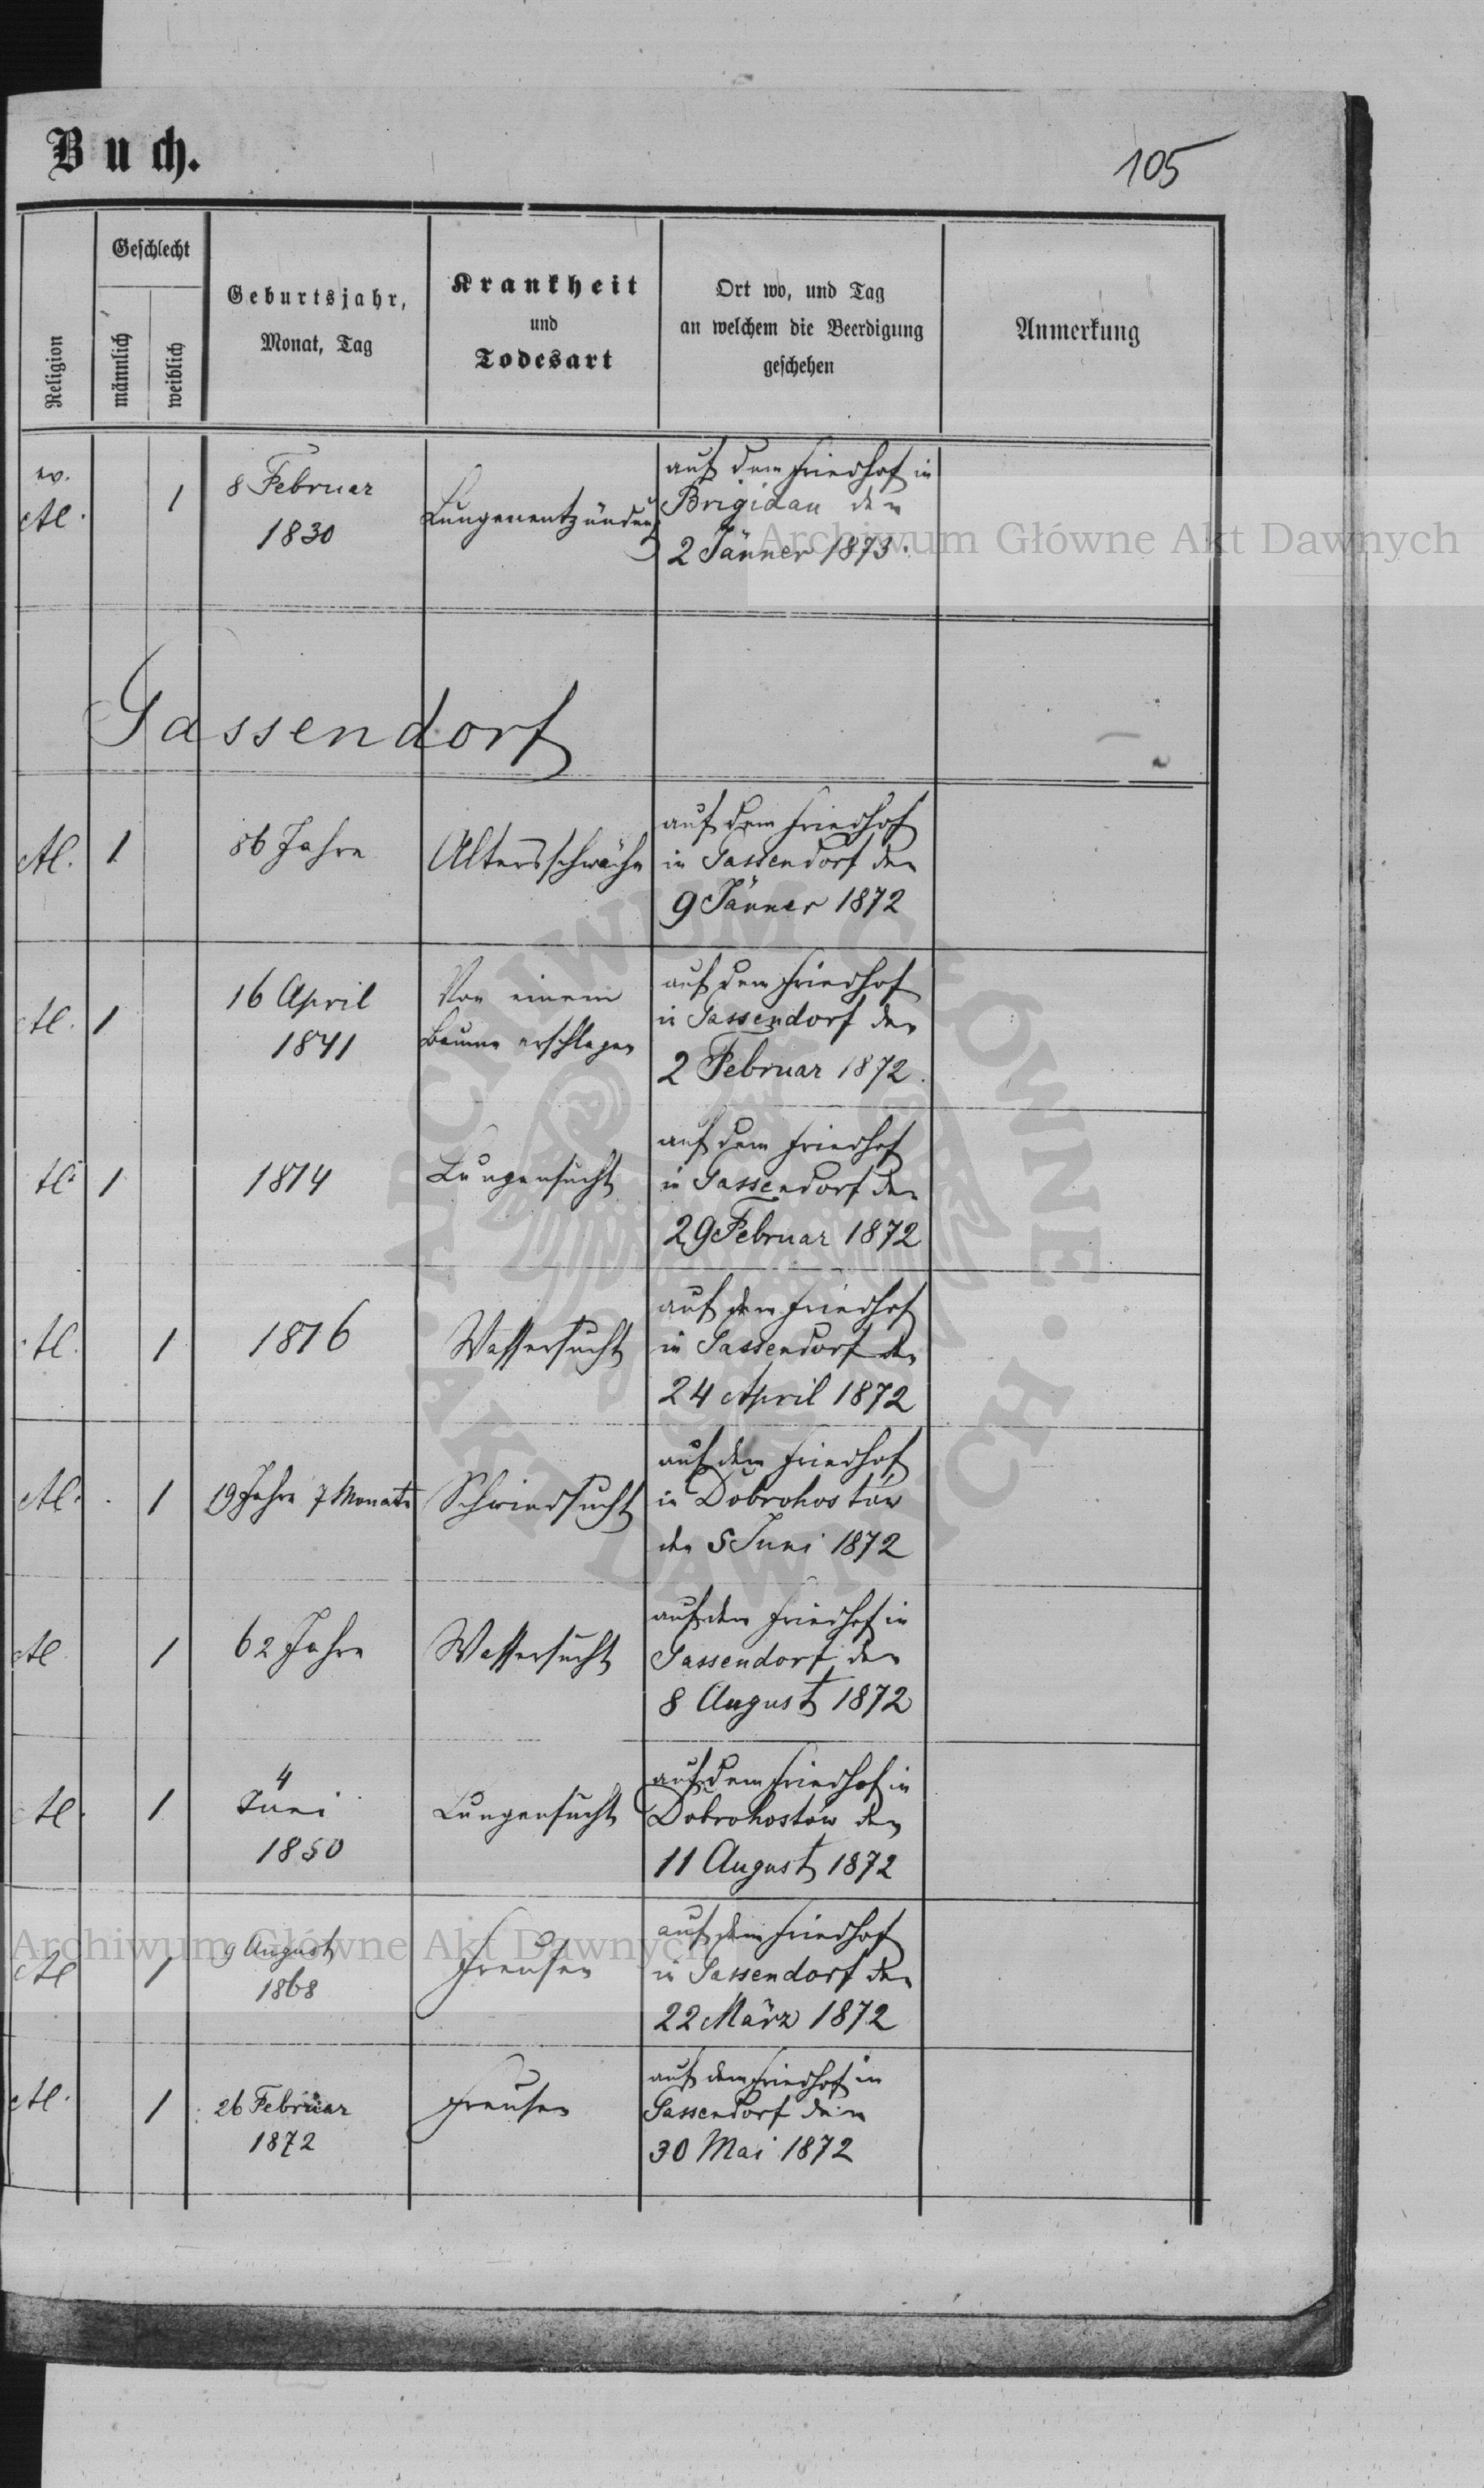 Buch.
105
Religion
Geschlecht
männlich
weiblich
Geburtsjahr,
Monat, Tag
Krankheit
und
Todesart
Ort wo, und Tag
an welchem die Beerdigung
geschehen
Anmerkung
ev.
A.C. 1
8 Februar
1830
Lungenentzündung
auf dem Friedhof in
Brigidau den
2 Jänner 1873.
Gassendorf
A.C. 1
86 Jahre
Altersschwäche
auf dem Friedhof
in Gassendorf den
9 Jänner 1872
A.C. 1
16 April
1841
Von einem
Baume erschlagen
auf dem Friedhof
in Gassendorf den
2 Februar 1872.
A.C. 1
1814
Lungensucht
auf dem Friedhof
in Gassendorf den
29 Februar 1872
A.C. 1
1816
Wassersucht
auf dem Friedhof
in Gassendorf den
24 April 1872
A.C. 1
19 Jahre 7 Monate
Schwindsucht
auf dem Friedhof
in Dobrohostów
den 5 Juni 1872
A.C. 1
62 Jahre
Wassersucht
auf dem Friedhof in
Gassendorf den
8 August 1872
A.C. 1
4
Juni
1850
Lungensucht
auf dem Friedhof in
Dobrohostów den
11 August 1872
A.C. 1
9 August
1868
Freusen
auf dem Friedhof
in Gassendorf den
22 März 1872
A.C. 1
26 Februar
1872
Freusen
auf dem Friedhof in
Gassendorf den
30 Mai 1872
Archiwum Główne Akt Dawnych
Archiwum Główne Akt Dawnych
ARCHIWUM GŁÓWNE AKT DAWNYCH